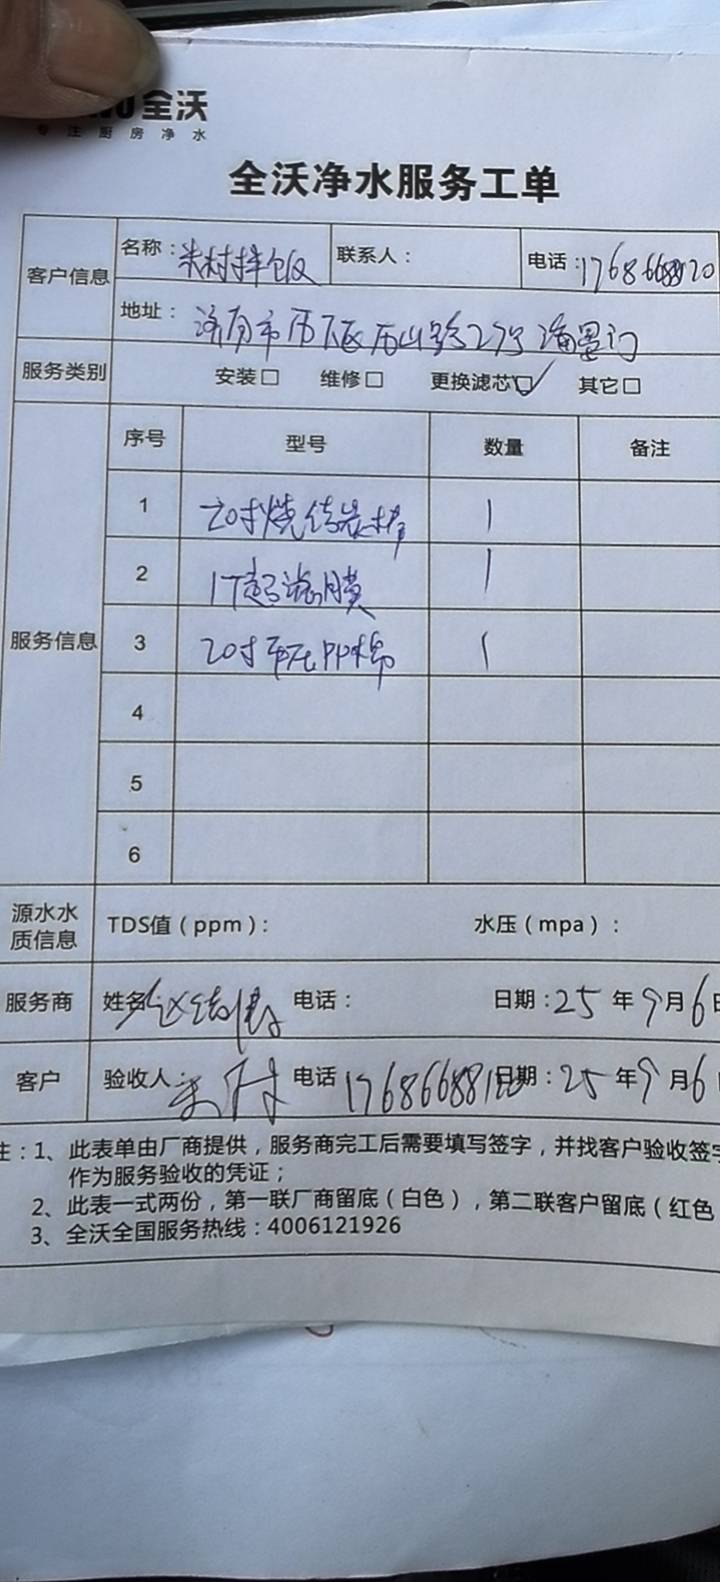 全沃
专注厨房净水
全沃净水服务工单
客户信息 名称：米村拌饭 联系人： 电话：
地址：济南市历下区历山路27号
服务类别 安装□ 维修□ 更换滤芯☑ 其它□
服务信息 序号 型号 数量 备注
1 20寸烧结炭棒 1
2 1T超滤膜 1
3 20寸 PP棉 1
4
5
6
源水水质信息 TDS值（ppm）： 水压（mpa）：
服务商 姓名 电话： 日期：25年9月6日
客户 验收人： 电话 日期：25年9月6
注：1、此表单由厂商提供，服务商完工后需要填写签字，并找客户验收签字
作为服务验收的凭证；
2、此表一式两份，第一联厂商留底（白色），第二联客户留底（红色
3、全沃全国服务热线：4006121926